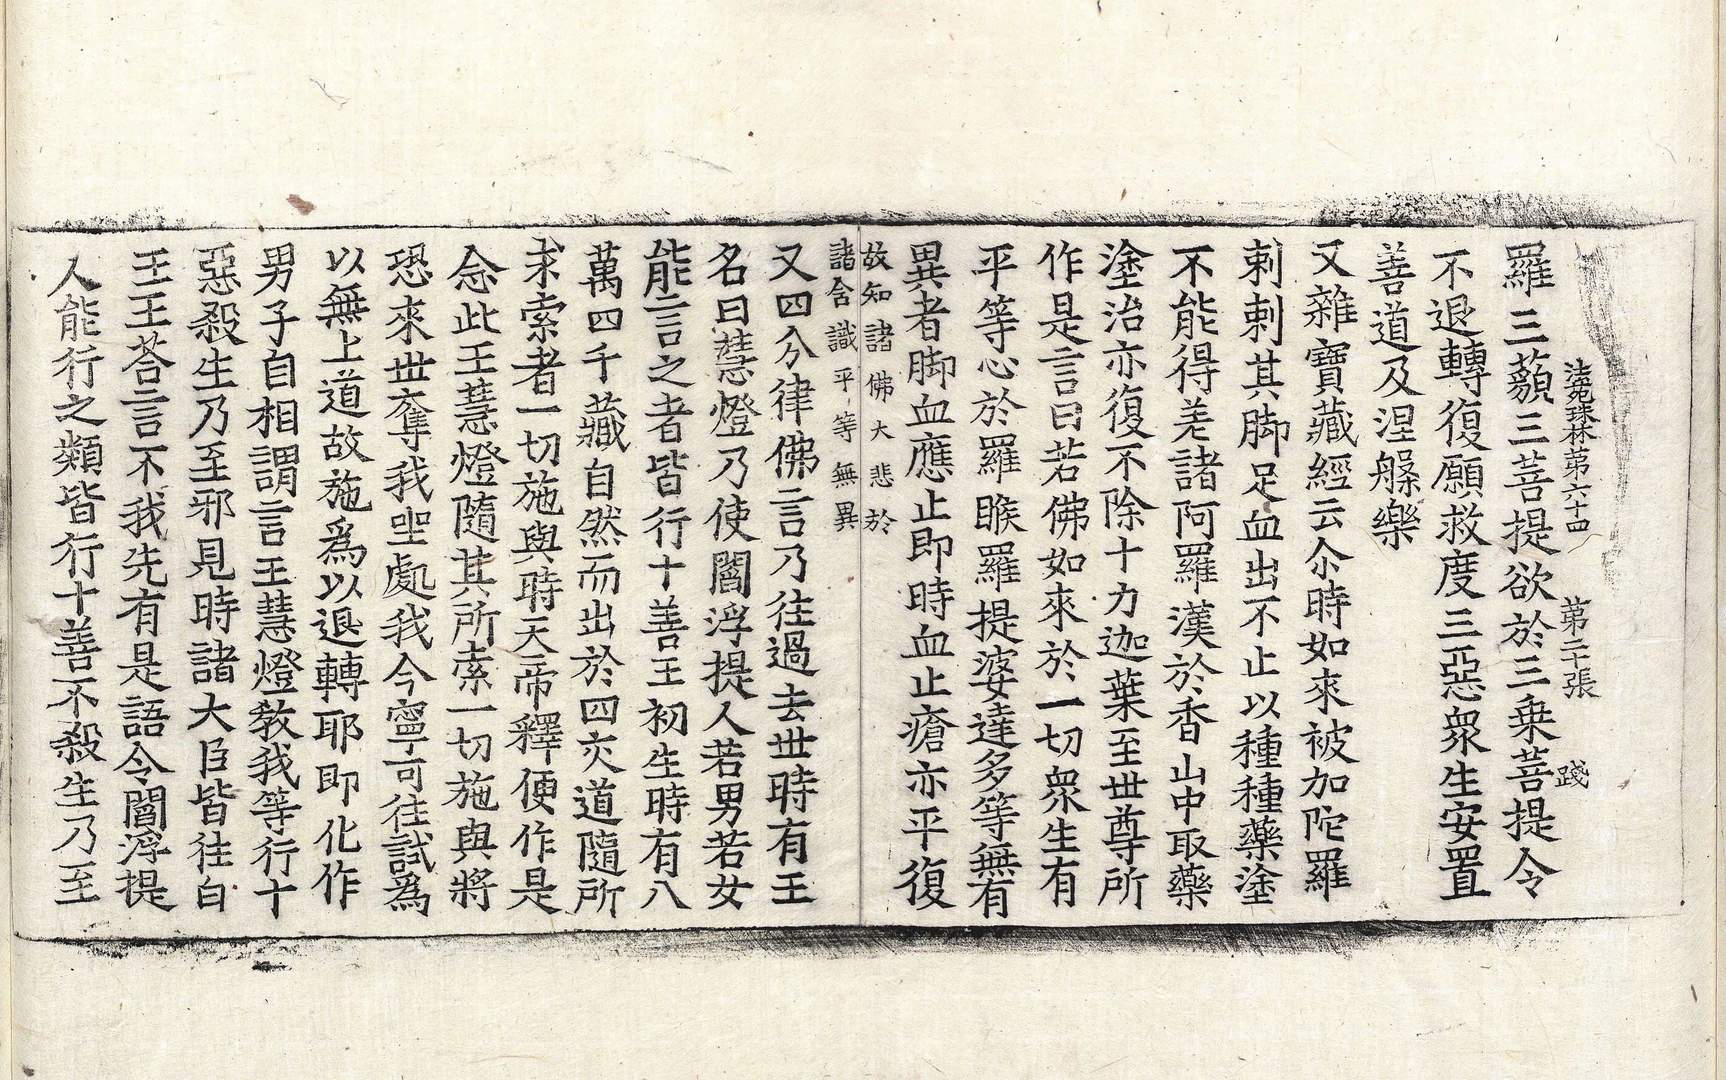 法苑珠林第六十四 第二十張 踐
羅三藐三菩提欲於三乗菩提令
不退轉復願救度三惡衆生安置
善道及涅槃樂
又雜寶藏經云尒時如來被加陀羅
刺刺其脚足血出不止以種種藥塗
不能得差諸阿羅漢於香山中取藥
塗治亦復不除十力迦葉至世尊所
作是言曰若佛如來於一切衆生有
平等心於羅睺羅提婆達多等無有
異者脚血應止即時血止瘡亦平復
故知諸佛大悲於
諸含識平等無異
又四分律佛言乃往過去世時有王
名曰慧燈乃使閻浮提人若男若女
能言之者皆行十善王初生時有八
萬四千藏自然而出於四交道隨所
求索者一切施與時天帝釋便作是
念此王慧燈隨其所索一切施與將
恐來世奪我坐處我今寧可往試爲
以無上道故施爲以退轉耶即化作
男子自相謂言王慧燈教我等行十
惡殺生乃至邪見時諸大臣皆往白
王王荅言不我先有是語令閻浮提
人能行之類皆行十善不殺生乃至